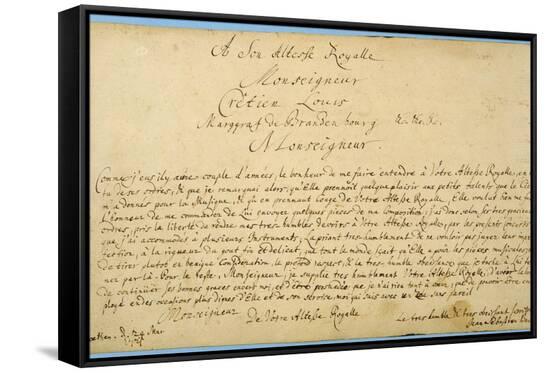 A Son Altesse Royalle
Monseigneur
Crêtien Louis
Marggraf de Brandenbourg &c. &c. &c.
Monseigneur.
Comme j'eus il y a une couple d'années, le bonheur de me faire entendre à Votre Altesse Royalle, en
tu de ses ordres, & que je remarquai alors, qu'Elle prennoit quelque plaisir aux petits talents que le Ciel
m'a donnés pour la Musique, & qu'en prennant Congé de Votre Altesse Royalle, Elle voulut bien me
l'honneur de me commander de Lui envoyer quelques pieces de ma Composition, j'ai donc selon ses tres gracieux
ordres, pris la liberté de rendre mes tres-humbles devoirs à Votre Altesse Royalle, par les presents Concerts
que j'ai accommodés à plusieurs Instruments; La priant tres-humblement de ne vouloir pas juger leur imper
fection, à la rigueur du gout fin et delicat, que tout le monde sçait qu'Elle a pour les pièces musicales
de tirer plutot en benigne Consideration, le profond respect, & la tres-humble obeissance que
par là. Pour le reste, Monseigneur, je supplie tres humblement Votre Altesse Royalle, d'avoir la bonté
de continuer ses bonnes graces envers moi, et d'être persuadée que je n'ai rien tant à cœur, que de pouvoir être em
ployé en des occasions plus dignes d'Elle et de son service, moi qui suis avec un zele sans pareil
Monseigneur
De Votre Altesse Royalle
Le tres humble & tres obeissant
Jean Sebastien
d. 24 Mar